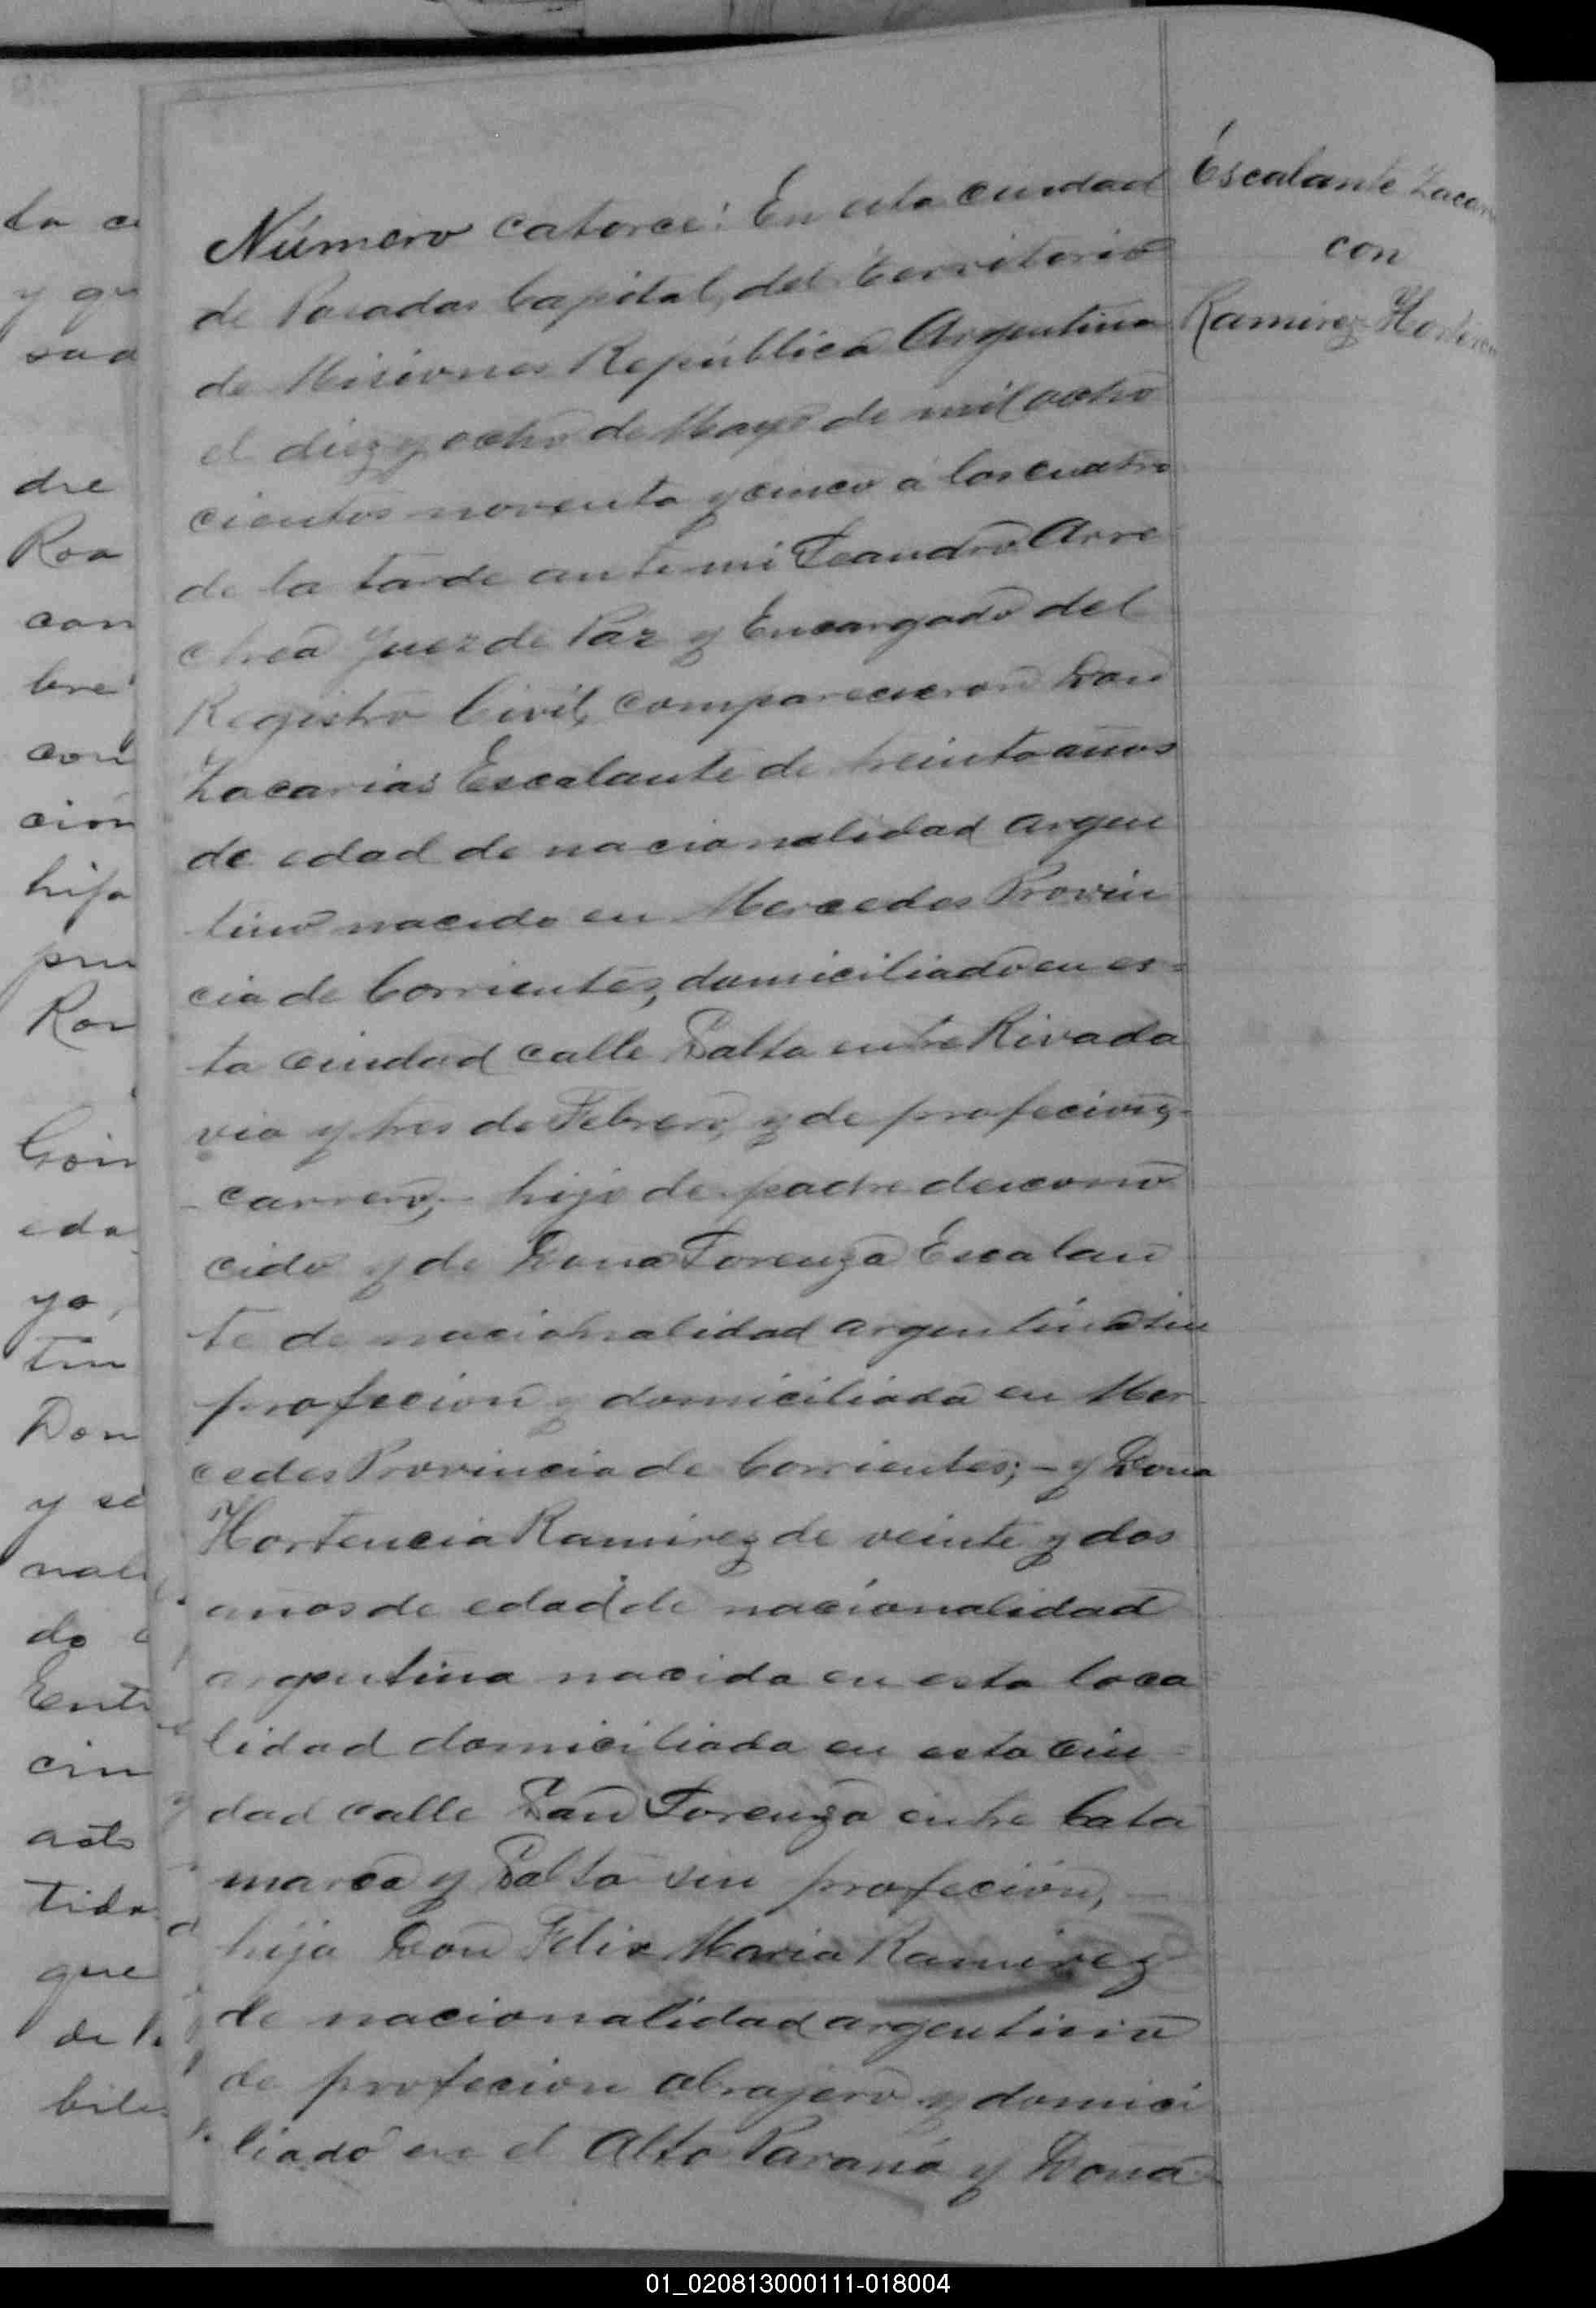 Escalante Zacar
con
Ramirez Hortenc
Número catorce: En esta ciudad
de Posadas Capital, del Territorio
de Misiones República Argentina
el diez y ocho de Mayo de mil ocho
cientos noventa y cinco á las cuatro
de la tarde ante mi Leandro Arre
chea Juez de Paz y Encargado del
Registro Civil, comparecieron Don
Zacarias Escalante de treinta años
de edad de nacionalidad argen
tino nacido en Mercedes Provin
cia de Corrientes, domiciliado en es-
ta ciudad calle Salta entre Rivada
via y tres de Febrero, y de profecion,-
carrero,- hijo de padre descono
cido y de Dona Lorenza Escalan
te de nacionalidad argentina sin
profecion y domiciliada en Mer
cedes Provincia de Corrientes; - y Dona
Hortencia Ramirez de veinte y dos
años de edad de nacionalidad
argentina nacida en esta loca
lidad domiciliada en esta ciu-
dad calle San Lorenzo entre Cata
marca y Salta sin profecion, -
hija Don Felix Maria Ramirez
de nacionalidad argentino
de profecion obrajero y domici
liado en el Alto Paraná y Dona
ta
y
dre
Roa
con
bre
con
cion
hija
Gon
eda
ya,
Don
y
do
acto
tida
que
de
01_020813000111-018004